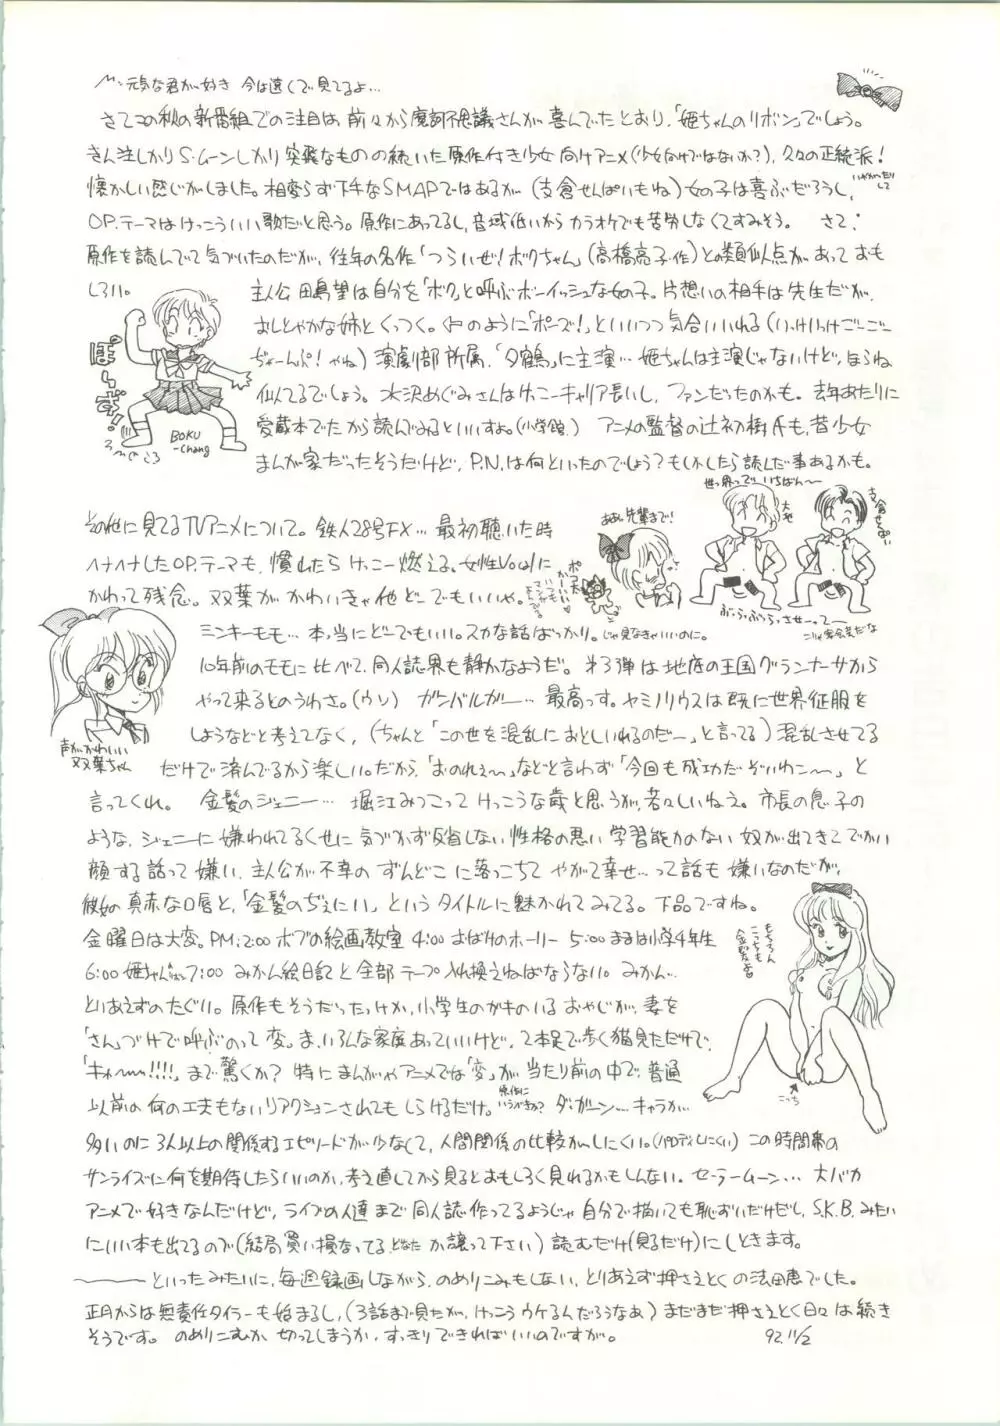 〽元気な君が好き 今は遠くで見てるよ…
さてこの秋の新番組での注目は、前々から摩訶不思議さんが喜んでたとおり、「姫ちゃんのリボン」でしょう。
きん注しかりS・ムーンしかり突飛なものの続いた原作付き少女向けアニメ(少女向けではないか?)、久々の正統派!
懐かしい感じがしました。相変らず下手なSMAPではあるが(支倉せんぱいもね)女の子は喜ぶだろうし、
OP.テーマはけっこういい歌だと思う。原作にあってるし、音域低いからカラオケでも苦労しなくてすみそう。 さて、
原作を読んでて気づいたのだが、往年の名作「つらいぜ!ボクちゃん」(高橋亮子・作)との類似点があっておも
しろい。
主人公 田島望は自分を「ボク」と呼ぶボーイッシュな女の子。片想いの相手は先生だが、
おしとやかな姉とくっつく。のように「ポーズ!」といいつつ気合いいれる(いけいけごーごー
ぢゃーんぷ!やね)演劇部所属、「夕鶴」に主演… 姫ちゃんは主演じゃないけど、ほらね
似てるでしょう。水沢めぐみさんはけっこーキャリア長いし、ファンだったのかも。去年あたりに
愛蔵本でたから読んでみるといいすよ。(小学館) アニメの監督の辻初樹氏も、昔少女
まんが家だったそうだけど、P.N.は何といったのでしょう?もしかしたら読んだ事あるかも。
ぽーずっ!
BOKU
-chang
世っ界っで いちばん〜
大地
支倉せんぱい
ああっ先輩まで!
ぶっらぶっらっさせーってー
その他に見てるTVアニメについて。鉄人28号FX… 最初聴いた時
ハナハナしたOP.テーマも、慣れたらけっこー燃える。女性Vo.に
かわって残念。双葉がかわいきゃ他どーでもいいや。
ミンキーモモ… 本っ当にどーでもいい。スカな話ばっかり。じゃ見なきゃいいのに。
10年前のモモに比べて、同人誌界も静かなようだ。第3弾は地底の王国グランナーサから
やって来るとのうわさ。(ウソ) ガンバルガー… 最高っす。ヤミノリウスは既に世界征服を
しようなどと考えてなく、(ちゃんと「この世を混乱におとしいれるのだー」と言ってる)混乱させてる
声がかわいい
双葉ちゃん
だけで済んでるから楽しい。だから「おのれぇ〜」などと言わず「今回も成功だぞいわン〜」と
言ってくれ。 金髪のジェニー… 堀江みつこってけっこうな歳と思うが、若々しいねえ。市長の息子の
ような、ジェニーに嫌われてるくせに気づかず反省しない、性格の悪い学習能力のない奴が出てきてでかい
顔する話って嫌い。主人公が不幸のずんどこに落っこちてやがて幸せ…って話も嫌いなのだが、
彼女の真赤な口唇と、「金髪のぢぇにい」というタイトルに魅かれてみてる。下品ですね。
金曜日は大変。PM;2:00 ボブの絵画教室 4:00 おばけのホーリー 5:00 まるは小学4年生
6:00 姫ちゃん 7:00 みかん絵日記と全部テープ入れ換えねばならない。みかん…
とりあえずのたぐい。原作もそうだったっけか、小学生のガキのいるおやじが、妻を
「さん」づけで呼ぶのって変。ま、いろんな家庭あっていいけど、2本足で歩く猫見ただけで、
「キャ〜〜!!!!」まで驚くか? 特にまんがやアニメでは「変」が当たり前の中で、普通
以前の何の工夫もないリアクションされてもしらけるだけ。ダ・ガーン… キャラが
こっち
多いのに3人以上の関係するエピソードが少なくて、人間関係の比較がしにくい。(パロディしにくい) この時間帯の
サンライズに何を期待したらいいのか、考え直してから見るとおもしろく見れるかもしんない。セーラームーン… 大バカ
アニメで好きなんだけど、ライブの人達まで同人誌作ってるようじゃ自分で描いても恥ずいだけだし、S.K.B.みたい
にいい本も出てるので(結局買い損なってる、どなたか譲って下さい)読むだけ(見るだけ)にしときます。
――といったみたいに、毎週録画しながら、のめりこみもしない、とりあえず押さえとくの法田恵でした。
正月からは無責任タイラーも始まるし、(3話まで見たが、けっこうウケるんだろうなあ)まだまだ押さえとく日々は続き
そうです。のめりこむか切ってしまうか、すっきりできればいいのですが。 92.11/2